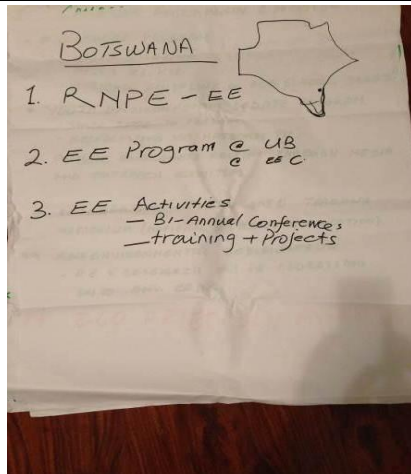 BOTSWANA
1. RNPE – EE
2. EE Program @ UB
@ EE C.
3. EE Activities
– Bi-Annual Conferences
– training + Projects